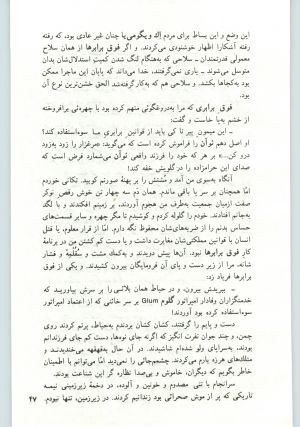 این وضع و این بساط برای مردم اک ویگومی‌یا چنان غیر عادی بود، که رفته
رفته آشکارا اظهار خوشنودی می‌کردند. و اگر فوق برابرها از همان سلاح
معمولی قدرتمندان ـ سلاحی که به‌هنگام لنگ شدن کمیت استدلال‌شان بدان
متوسل می‌شوند ـ یاری نمی‌گرفتند، خدا می‌داند که پایان این ماجرا ممکن
بود به‌کجاها بکشد. و سلاحی هم که به‌کار گرفته‌شد الحق خشن‌ترین نوع آن
بود.
فوق برابری که مرا به‌دروغگوئی متهم کرده بود با چهره‌ئی برافروخته
از خشم به‌پا خاست و گفت:
ـ این میمون پیر تا کی باید از قوانین برابری ما سوءاستفاده کند؟
او اصل دهم توآن را فراموش کرده است که می‌گوید: «مرغزار را زود به‌زود
درو کن...» بر هر که خود را فرزند واقعی توآن می‌شمارد فرض است که
صدای این حرامزاده را در گلویش خفه کند!
آنگاه به‌سوی من آمد و مشتش را بر پهنهٔ صورتم کوبید. تکانی خوردم
اما همچنان بر سر پا باقی ماندم. همان دم سه چهار تن خوش رقص نوکر
صفت ازمیان جمعیت به‌طرف من هجوم آوردند، بر زمینم افکندند و با لگد
به‌جانم افتادند. خودم را گلوله کردم و کوشیدم تا مگر چهره و سایر قسمت‌های
حساس بدنم را از ضربه‌های‌شان محفوظ نگه دارم. اما از قرار معلوم، یا قتل
انسان با قوانین مملکتی‌شان مغایرت داشت و یا دست کم کشتن من در برنامهٔ
کار فوق برابرها نبود. آن‌ها پیش دویدند و به‌کمک مشت و سقلمه و فشار
شانه، مرا از زیر دست و پای آن فرومایگان بیرون کشیدند. و یکی از فوق
برابرها فریاد زد:
ـ ببریدش بیرون، و در حیاط همان بلائی را بر سرش بیاورید که
خدمتگزاران وفادار امپراتور گلوم Glum بر سر خائنی که از اعتماد امپراتور
سوءاستفاده کرده بود آوردند!
دست و پایم را گرفتند، کشان کشان بردندم به‌حیاط، پرتم کردند روی
چمن، و چند جوان نفرت انگیز که اگرنه جای نوه‌ها، دست کم جای فرزندانم
بودند، به‌سراپای ولو شده‌ام شاشیدند. در آن حال به‌قهقهه می‌خندیدند و
متلک‌های هرزه بارم می‌کردند. چشم‌جائی را نمی‌دید اما می‌توانم با اطمینان
خاطر بگویم که دیگران، خاموش و بی‌صدا نظاره گر این شناعت بودند.
سرانجام با تنی مصدوم و خونین و آلوده، در دخمهٔ زیرزمینی نیمه
تاریکی که پر از موش صحرائی بود زندانیم کردند. در زیرزمین، تنها نبودم.
۴۷